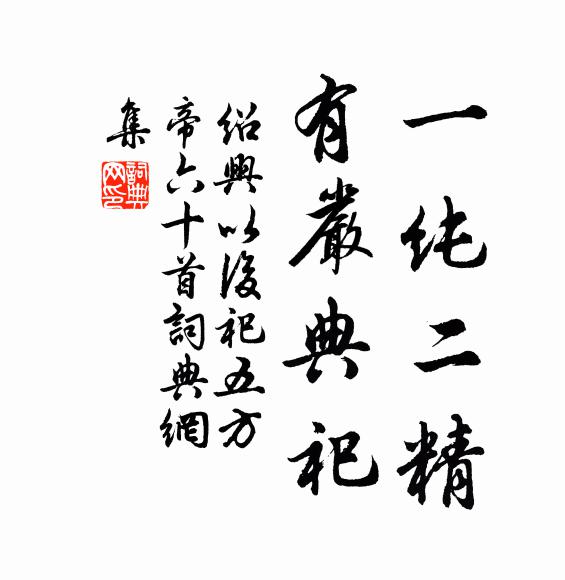 一纯二精
有嚴典祀
绍興以後祀五方
帝六十首詞典網
集
詞典
网印